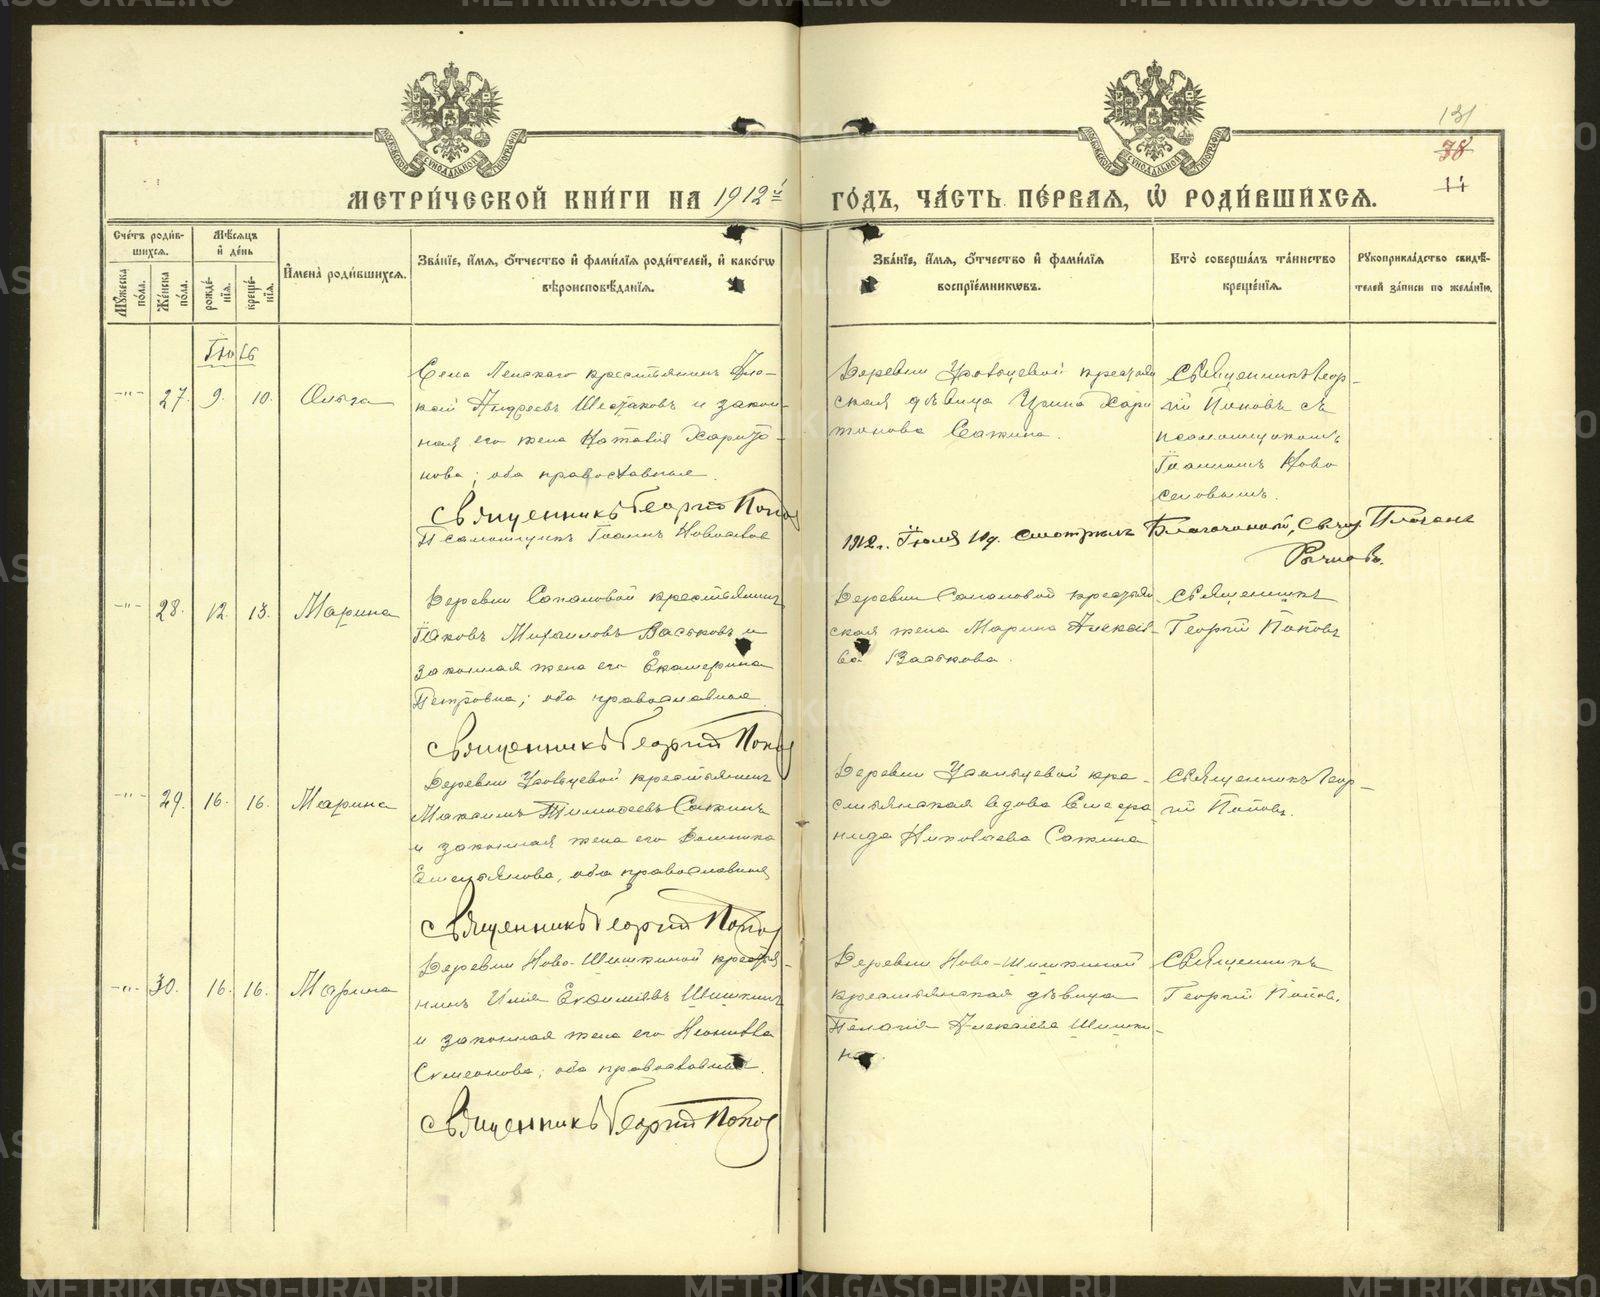 131
38
11
МЕТРИ́ЧЕСКОЙ КНИ́ГИ НА 1912й
ГО́ДЪ, ЧА́СТЬ ПЕ́РВАЯ, Ѡ҆ РОДИ́ВШИХСЯ.
Сче́тъ роди́вшихся.
Мꙋ́жеска по́ла.
Же́нска по́ла.
Мѣ́сяцъ и҆ де́нь
рожде́нїя.
креще́нїя.
И҆мена̀ роди́вшихся.
Зва́нїе, и҆́мя, ѻ҆́тчество и҆ фами́лїя роди́телей, и҆ како́гѡ
вѣроисповѣ́данїя.
Зва́нїе, и҆́мя, ѻ҆́тчество и҆ фами́лїя
воспрїе́мникѡвъ.
Кто̀ соверша́лъ та́инство
креще́нїя.
Рꙋкоприкла́дство свидѣ́-
телей за́писи по жела́нїю.
27. 9. 10. Ольга
Села Ленскаго крестьянинъ
Андреевъ Шестаковъ и закон-
ная его жена Наталія Харито-
нова; оба православные.
Священникъ Георгій Попов
Псаломщикъ Іоаннъ Новоселов
Деревни крестьян
ская дѣвица Ирина Хари
тонова Сажина.
Священникъ Геор-
гій Поповъ съ
псаломщикомъ
Іоанномъ Ново
селовымъ.
1912 г. Іюля 11 д. смотрѣлъ Благочинный, Свящ. Платонъ
28. 12. 13. Марина
Деревни крестьянинъ
Іаковъ Михаиловъ Васьковъ и
законная жена его Екатерина
Петровна; оба православные.
Священникъ Георгій Попов
Деревни крестьян
ская жена Марина Алексѣ-
ва Васькова.
Священникъ
Георгій Поповъ
29. 16. 16. Марина
Деревни крестьянинъ
Максимъ Тимофеевъ Сажинъ
и законная жена его
Емельянова, оба православные
Священникъ Георгій Попов
Деревни кре-
стьянская вдова
нида Николаева Сажина
Священникъ Геор-
гій Поповъ.
30. 16. 16. Марина
Деревни Ново-Шишкиной крестья-
нинъ Илія Евфиміевъ Шишкинъ
и законная жена его Неонилла
Симеонова; оба православные.
Священникъ Георгій Попов
Деревни Ново-Шишкиной
крестьянская дѣвица
Пелагія Алексѣева Шишки-
на.
Священникъ
Георгій Поповъ.
METRIKI.GASO-URAL.RU